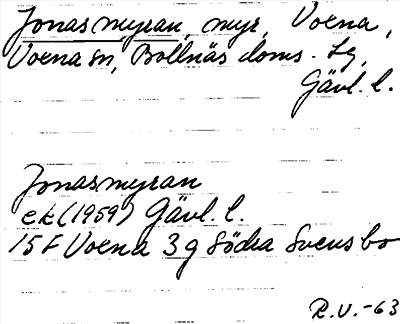 Jonasmyran, myr, Voxna,
Voxna sn, Bollnäs doms. lg,
Gävl. l.
Jonasmyran
ek (1959) Gävl. l.
15F Voxna 3g Södra Svensbo
R.V.-63